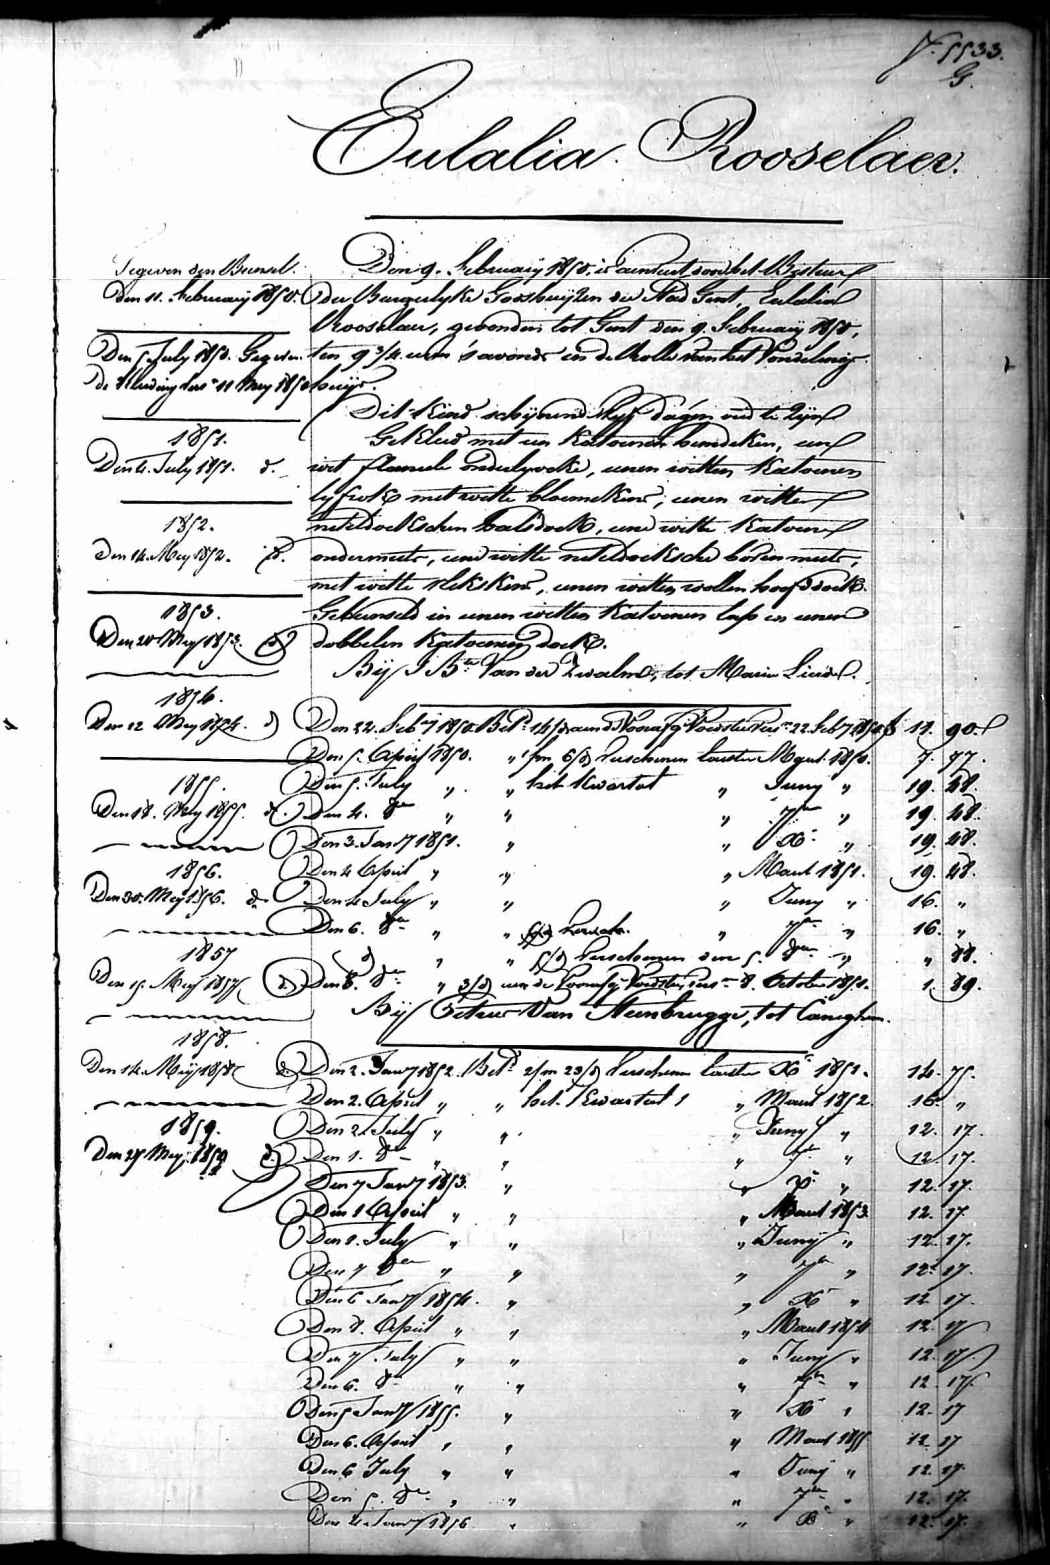 N. 5533.
G.
Eulalia Rooselaer.
Gegeven den Bunsel.
Den 11. February 1850.
Den 5 July 1850. Gegeven
de Kleeding sers 11 Mey 1850
1851.
Den 4. July 1851. d.
1852.
Den 14. Mey 1852. d.
1853.
Den 20 Mey 1853. d
1854.
Den 12 Mey 1854. d
1855.
Den 18. Mey 1855. d.
1856.
Den 30. Mey 1856. d.
1857
Den 15. Mey 1857. d.
1858.
Den 14. Meÿ 1858 d.
1859.
Den 27 Mey. 1859 d.
Den 9. February 1850, is aenveert door het Bestuer
der Burgerlyke Godshuyzen der Stad Gent, Eulalia
Rooselaer, gevonden tot Gent den 9. February 1850,
ten 9 3/4 uren 's avonds in de Rolle van het Vondeling
huys.
Dit Kind schynende vyf dagen oud te zyn
Gekleed met een Katoenen hemdeken, een
wit flanele onderlyveke, eenen witten Katoenen
lyfrok met witte bloemekens, eenen witten
neteldoekschen halsdoek, eene witte Katoene
ondermuts, eene witte neteldoeksche bovenmuts,
met witte strekskens, eenen witten wollen hoofddoek.
Gebunseld in eenen witten Katoenen lap en eenen
dobbelen Katoenen doek.
Bÿ J. Bte Van der Zwalme, tot Maria Lierde.
Den 22. Feby 1850. Betd 14/d aen de Voorafg Voedster sers 22 Feby 1850 f 11. 90.
Den 5. April 1850. " 1/m 6/d verschenen laatsten Maart 1850. 7. 77.
Den 5. July " " het Kwartal " Juny " 19. 48.
Den 4. 8er " " " 7er " 19. 48.
Den 3. Jany 1851. " " Xr " 19. 48.
Den 4 April " " " Maart 1851. 19. 48.
Den 4 July " " " Juny " 16. "
Den 6. 8er " " " 7er " 16. "
" " 5/d verschenen den 5. 8er " " 88.
Den 8. 8er " " 3/d aen de Voorafg Voedster, sers 8. October 1851. 1. 89.
Bÿ Petrus Van Steenbrugge, tot Caneghem.
Den 2. Jany 1852. Betd 2/m 23/d verschenen laatsten Xr 1851. 14. 75.
Den 2. April " " het Kwartal " Maart 1852. 16. "
Den 2. July " " " Juny " 12. 17.
Den 1. 8er " " " 7r " 12. 17.
Den 7 Jany 1853. " " Xr " 12. 17.
Den 1 April " " " Maart 1853 12. 17
Den 1. July " " " Juny " 12. 17.
Den 7 8er " " " 7er " 12. 17.
Den 6 Jany 1854. " " Xr " 12. 17.
Den 8. April " " " Maart 1854 12. 17
Den 7 July " " " Juny " 12. 17.
Den 6. 8er " " " 7er " 12. 17.
Den 5 Jany 1855. " " Xr " 12. 17
Den 6. April " " " Maart 1855 12. 17
Den 6 July " " " Juny " 12. 17.
Den 5. 8er " " " 7er " 12. 17.
Den 4. Jany 1856 " " Xr " 12. 17.